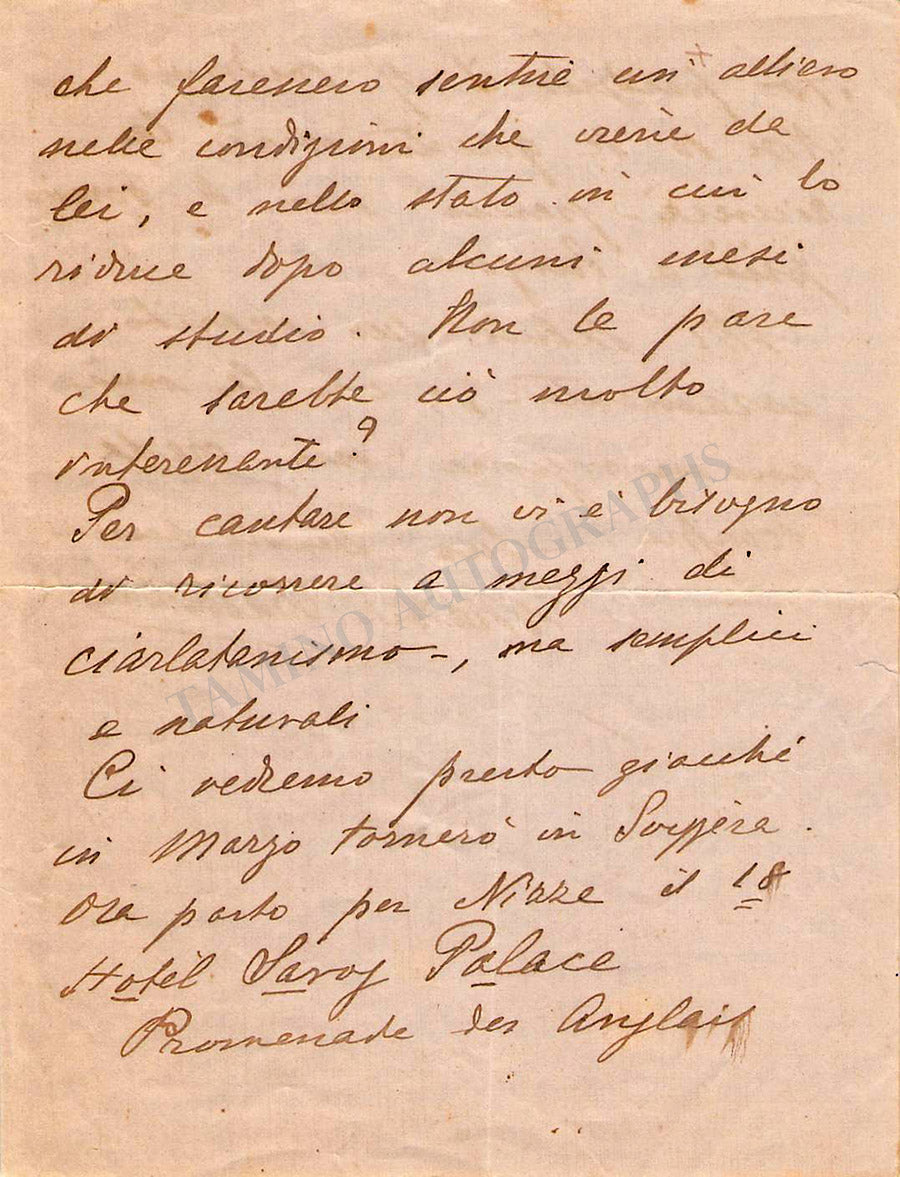 che facessero sentire un' allievo
nelle condizioni che viene da
lei, e nello stato in cui lo
riduce dopo alcuni mesi
di studio. Non le pare
che sarebbe ciò molto
interessante?
Per cantare non vi è bisogno
di ricorrere a mezzi di
ciarlatanismo –, ma semplici
e naturali
Ci vedremo presto giacché
in Marzo tornerò in Svizzera.
Ora parto per Nizza il 18
Hotel Savoy Palace
Promenade des Anglais
TAMINO AUTOGRAPHS